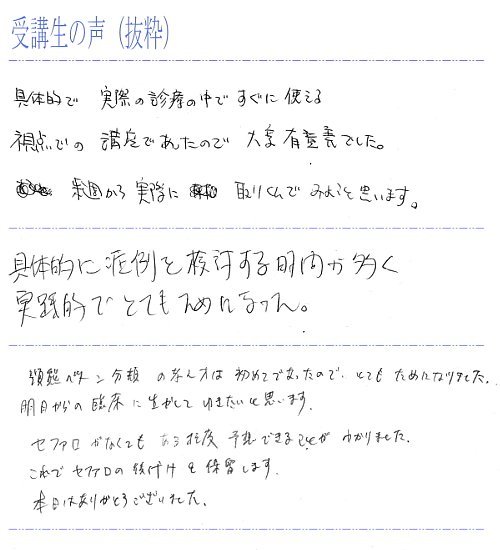 受講生の声（抜粋）
具体的で 実際の診療の中で すぐに 使える
視点での 講座であったので 大変 有意義でした。
来週から 実際に 取りくんで みようと思います。
具体的に症例を検討する時間が多く
実践的でとてもためになった。
顎態パターン分類 の考え方は 初めてであったので、とても ためになりました。
明日からの 臨床に生かして いきたいと思います。
セファロ がなくても ある程度 予想できることが わかりました。
これで セファロの 後付け を 保留します。
本日はありがとうございました。